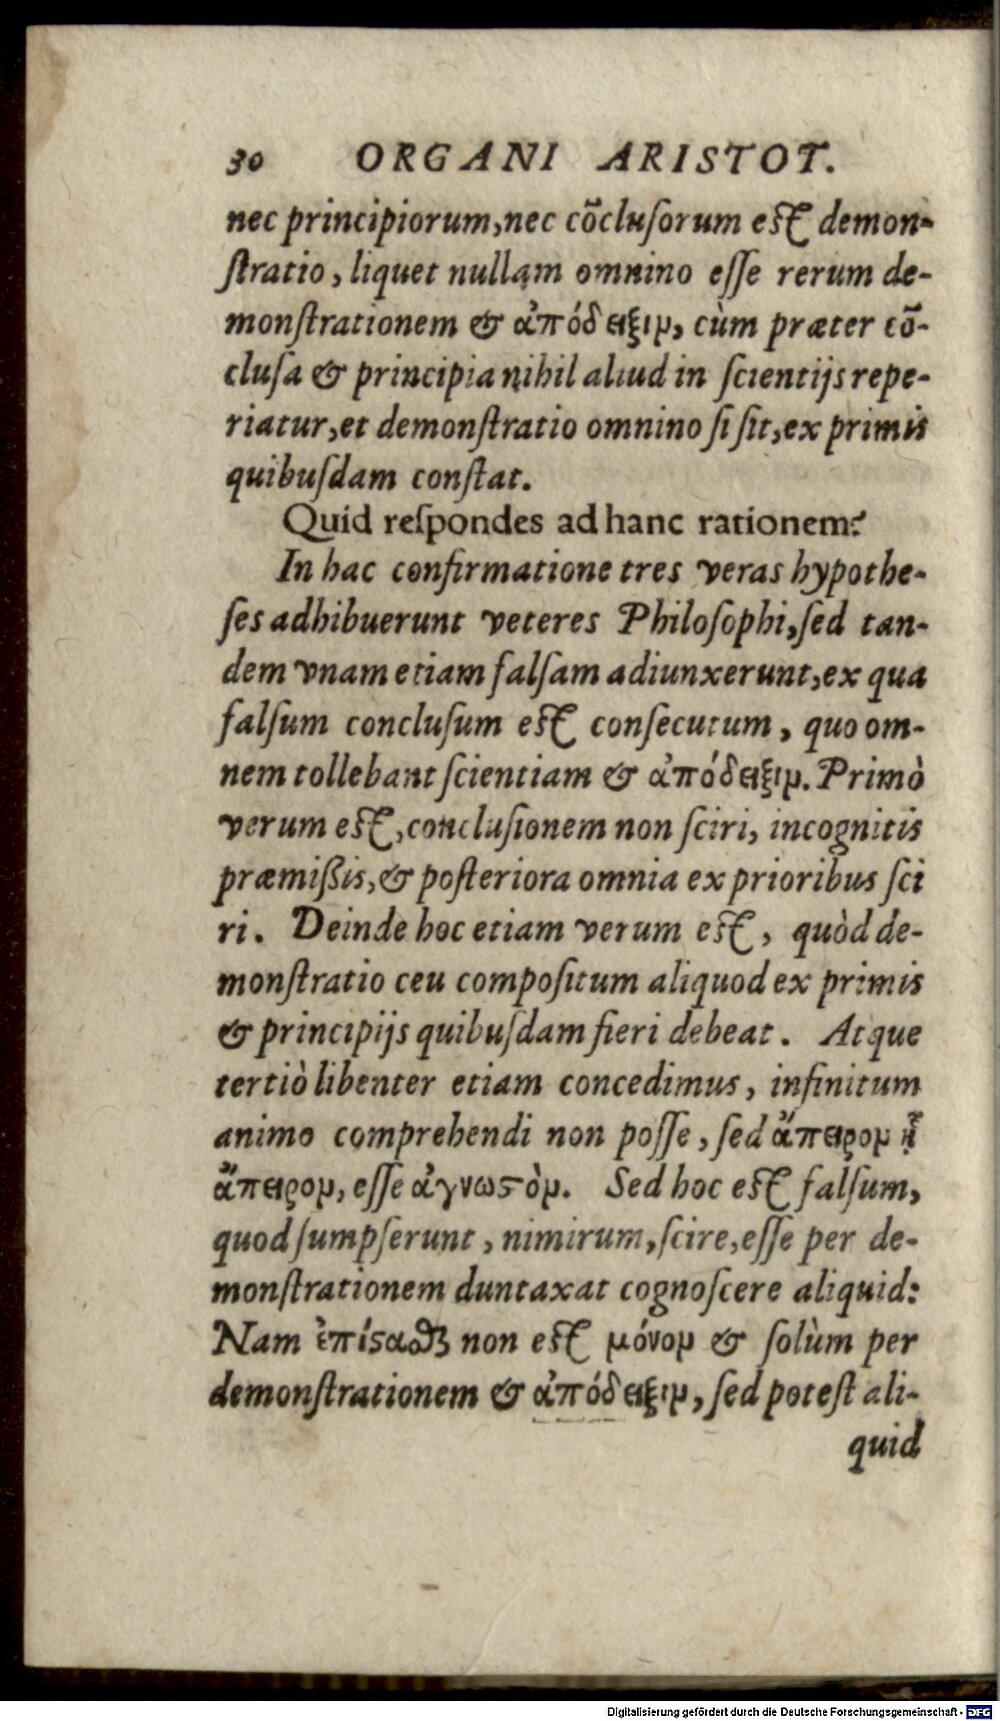 30 ORGANI ARISTOT.
nec principiorum, nec cōcluſorum eſt demon-
ſtratio, liquet nullam omnino eſſe rerum de-
monſtrationem & ἀπόδειξιμ, cùm præter cō-
cluſa & principia nihil aliud in ſcientijs repe-
riatur, et demonſtratio omnino ſi ſit, ex primis
quibuſdam conſtat.
Quid reſpondes ad hanc rationem?
In hac confirmatione tres veras hypothe-
ſes adhibuerunt veteres Philoſophi, ſed tan-
dem vnam etiam falſam adiunxerunt, ex qua
falſum concluſum eſt conſecutum, quo om-
nem tollebant ſcientiam & ἀπόδειξιμ. Primò
verum eſt, concluſionem non ſciri, incognitis
præmißis, & poſteriora omnia ex prioribus ſci
ri. Deinde hoc etiam verum eſt, quòd de-
monſtratio ceu compoſitum aliquod ex primis
& principijs quibuſdam fieri debeat. Atque
tertiò libenter etiam concedimus, infinitum
animo comprehendi non poſſe, ſed ἄπειρομ ᾗ
ἄπειρομ, eſſe ἀγνωϛὸμ. Sed hoc eſt falſum,
quod ſumpſerunt, nimirum, ſcire, eſſe per de-
monſtrationem duntaxat cognoſcere aliquid:
Nam ἐπίϛαϑαι non eſt μόνομ & ſolùm per
demonſtrationem & ἀπόδειξιμ, ſed poteſt ali-
quid
Digitalisierung gefördert durch die Deutsche Forschungsgemeinschaft - DFG